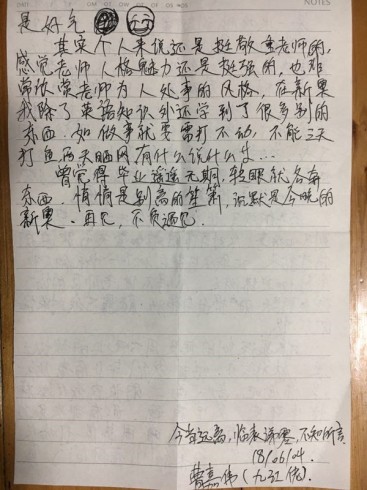 NOTES
是好气
其实个人来说还是挺敬重老师的,
感觉老师人格魅力还是挺强的,也非
常欣荣老师为人处事的风格,在新栗
我除了英语知识外还学到了很多别的
东西.如做事就要雷打不动,不能三天
打鱼两天晒网有什么说什么....
曾觉得毕业遥遥无期,转眼就各奔
东西.悄悄是别离的笙箫,沉默是今晚的
新栗.再见,不负遇见.
今当远离,临表涕零,不知所言.
18/06/04.